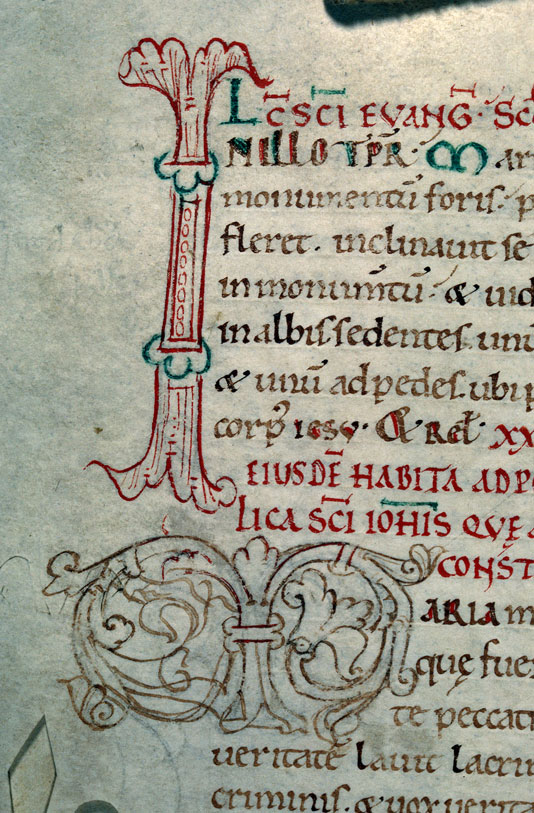 Lc̄ SCI EVANG̅. Sc̄
NILLO TP̅R. Mar
monumentū foris. p
fleret. inclinauit se
in monumtū. & uid
in albis. sedentes. unū
& unū ad pedes. ubi p
corpꝰ iesv. & Rel. XX
EIUSDĒ HABITA AD P
LICA SC̄I IOHIS QVĘ
CONST
ARIA m
quę fuer
te peccatr
ueritatē lauit lacrim
criminis. & uox uerita